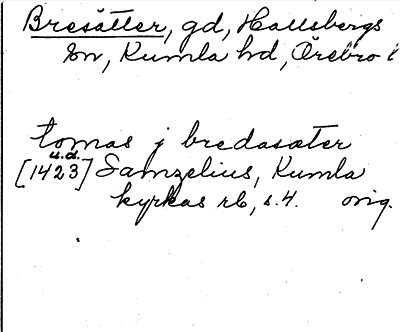 Bresätter, gd, Hallsbergs
sn, Kumla hd, Örebro l
tomas j bredasæter
u.d.
[1423] Samzelius, Kumla
kyrkas rb, s.4. orig.